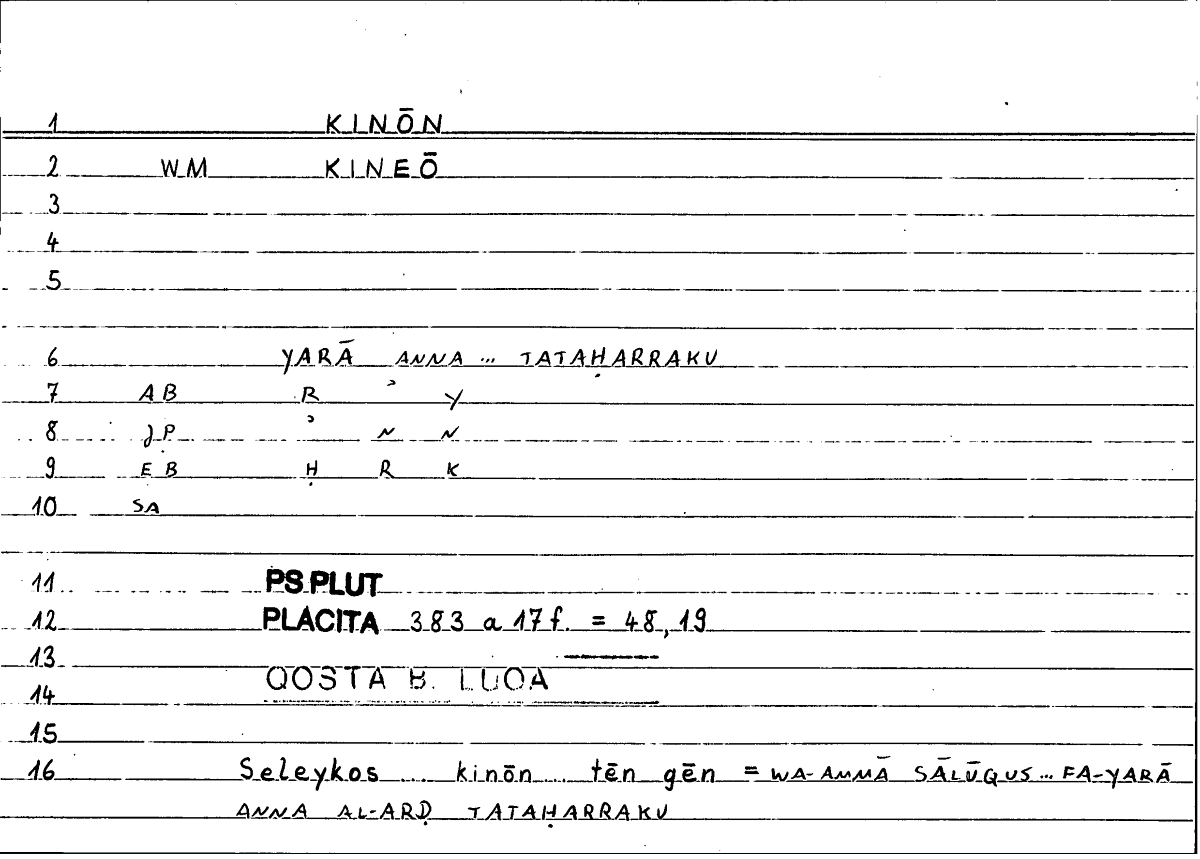 1 KINŌN
2 WM KINEŌ
3
4
5
6 YARĀ ANNA ... TATAḤARRAKU
7 AB R ʾ Y
8 JP ʾ N N
9 EB Ḥ R K
10 SA
11 PS.PLUT
12 PLACITA 383 a 17 f. = 48,19
13
14 QOSTA B. LUQA
15
16 Seleykos ... kinōn ... tēn gēn = WA-AMMĀ SĀLŪQUS ... FA-YARĀ
ANNA AL-ARḌ TATAḤARRAKU